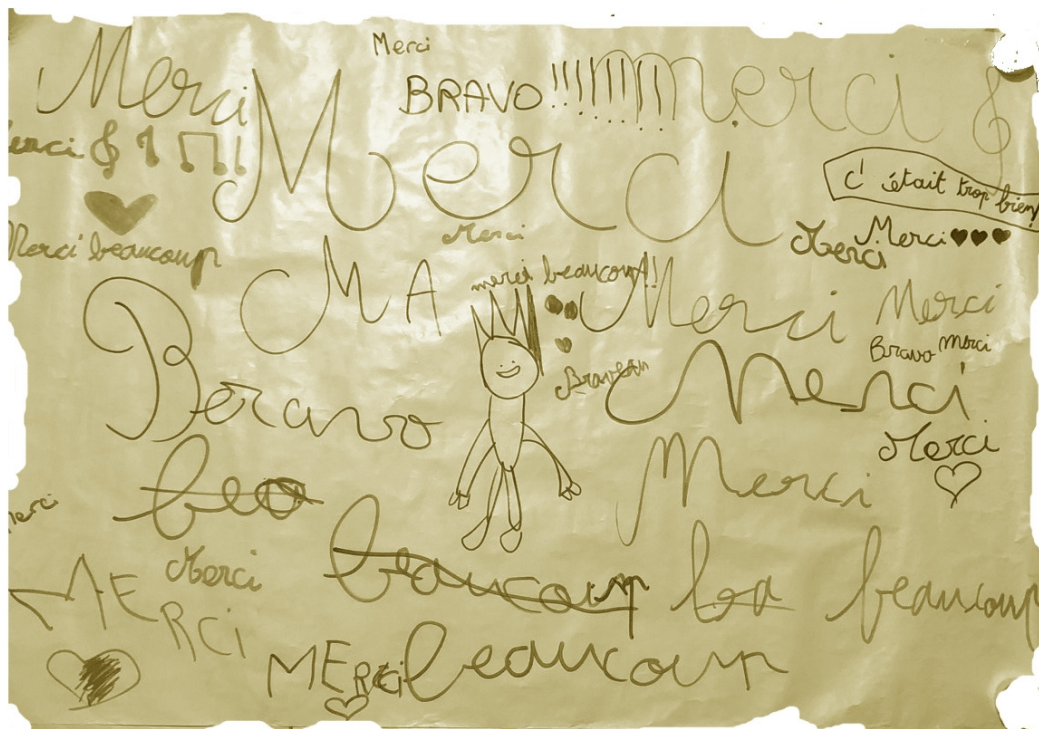 Merci
Merci
BRAVO!!!!!!!!!
merci
Merci
Merci
c'était trop bien
Merci
Merci
Merci
Merci beaucoup
MA
merci beaucoup!!
Merci
Merci
Bravo
Merci
Bravo
Merci
Merci
beo
Merci
Merci
Merci
beaucoup
ba
beaucoup
MERCi
MERci
beaucoup